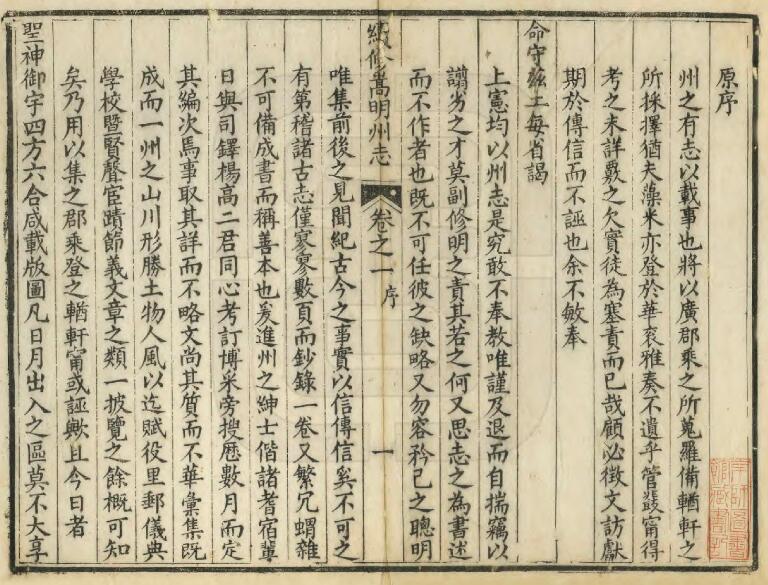 原序
州之有志以載事也將以廣郡乘之所蒐羅備輶軒之
所採擇猶夫藻米亦登於華衮雅奏不遺乎管籤甯得
考之未詳覈之欠實徒為塞責而已哉顧必徵文訪獻
期於傳信而不誣也余不敏奉
命守茲土每省謁
上憲均以州志是究敢不奉教唯謹及退而自揣竊以
譾劣之才莫副修明之責其若之何又思志之為書述
而不作者也既不可任彼之缺略又勿容矜己之聰明
續修嵩明州志
卷之一 序
一
唯集前後之見聞紀古今之事實以信傳信奚不可之
有第稽諸古志僅寥寥數頁而鈔錄一卷又繁冗蝟雜
不可備成書而稱善本也爰進州之紳士偕諸耆宿軰
日與司鐸楊高二君同心考訂博采旁搜歷數月而定
其編次焉事取其詳而不略文尚其質而不華彙集既
成而一州之山川形勝土物人風以迄賦役里郵儀典
學校暨賢聲宦蹟節義文章之類一披覽之餘概可知
矣乃用以集之郡乘登之輶軒甯或誣歟且今日者
聖神御宇四方六合咸載版圖凡日月出入之區莫不大享